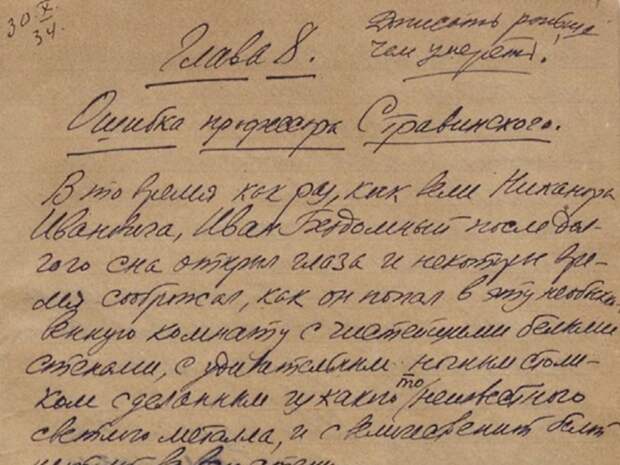 30 X.
34.
Дописать раньше
чем умереть!
Глава 8.
Ошибка профессора Стравинского.
В то время как раз, как вели Никанора
Ивановича, Иван Бездомный после дол-
гого сна открыл глаза и некоторое вре-
мя соображал, как он попал в эту необык-
венную комнату с чистейшими белыми
стенами, с удивительным ночным столи-
ком сделанным из какого то неизвестного
светлого металла, и с величественной белой